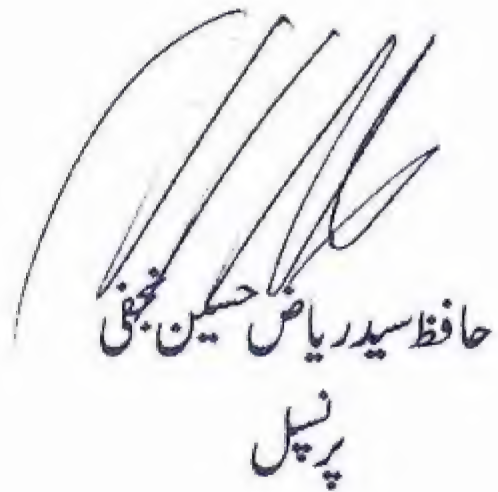 حافظ سید ریاض حسین نجفی
پرنسپل